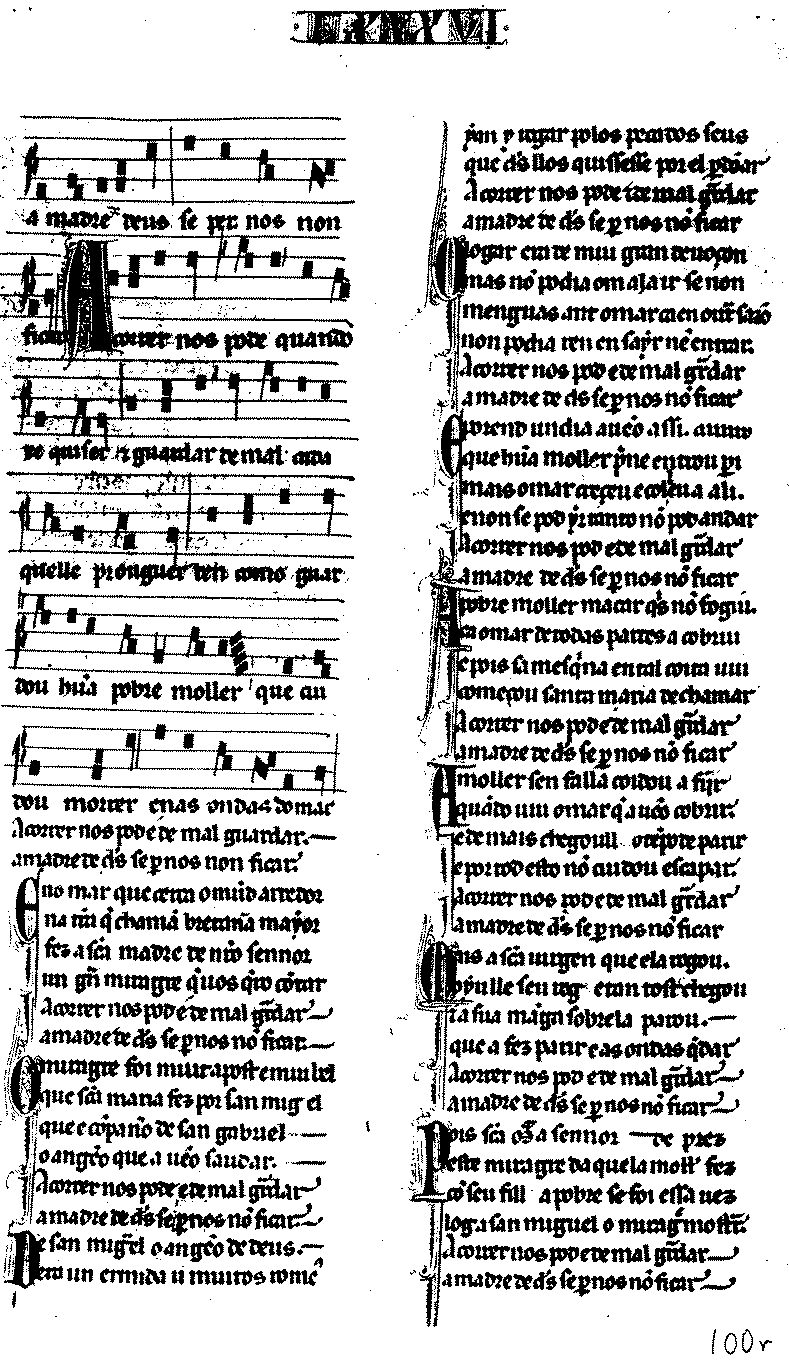 LXXXVI
a madre deus se per nos non
ficar Acorrer nos pode quando
ro quiser z guardar de mal cada
quelle prouguer ben como guar
dou hũa pobre moller que cu
dou morrer enas ondas do mar
Acorrer nos pod e de mal guardar.
a madre de ds̃ se ꝑ nos non ficar.
Eno mar que cerca o mũd arredor
na trã q̇ chamã bretanna mayor
fez a scã madre de nr̃o sennor
un grã miragre q̇ uos q̇ro cõtar
Acorrer nos pod e de mal gr̃dar
a madre de ds̃ se ꝑ nos nõ ficar.
O miragre foi muit apost e muit bel
que scã maria fez por san mig el
que e cõpanno de san gabriel
o angẽo que a uẽo saudar.
Acorrer nos pode e de mal gr̃dar
a madre de ds̃ se ꝑ nos nõ ficar.
De san migel o angẽo de deus.
era un ermida u muitos romẽ
yan y rogar polos pecados seus
que ds̃ llos quisesse por el pdõar
Acorrer nos pode e de mal gr̃dar
a madre de ds̃ se ꝑ nos nõ ficar
O logar era de mui gran deuoçon
mas nõ podia om ala ir se non
menguas ante o mar ca en outr̃ sazõ
non podia ren en sayr nẽ entrar.
Acorrer nos pod e de mal gr̃dar
a madre de ds̃ se ꝑ nos nõ ficar
E porend un dia auẽo assi.
que hũa moller prẽne entrou ꝑ i
mais o mar creceu e colleu a ali.
e non se pod yr tanto nõ pod andar
Acorrer nos pod e de mal gr̃dar
a madre de ds̃ se ꝑ nos nõ ficar
A pobre moller macar q̇s nõ fogiu.
ca o mar de todas partes a cobriu
e pois sa mesq̇na en tal coita uiu
começou santa maria de chamar
Acorrer nos pod e de mal gr̃dar
a madre de ds̃ se ꝑ nos nõ ficar
A moller sen falla coidou a fĩir
quãdo uiu o mar q̇ a uẽo cobrir.
e de mais chegoull o tẽpo de parir
e por tod esto nõ cuidou escapar.
Acorrer nos pod e de mal gr̃dar
a madre de ds̃ se ꝑ nos nõ ficar
Mas a scã uirgen que ela rogou.
oyu lle seu rog e tan tost chegou
ta sua mãga sobrela parou.
que a fez parir e as ondas q̇dar
Acorrer nos pod e de mal gr̃dar
a madre de ds̃ se ꝑ nos nõ ficar
Pois scã a sennor de prez
este miragre daquela moll fez
cõ seu fill a pobre se foi essa uez
log a san miguel o mirag̃ mostr̃.
Acorrer nos pod e de mal gr̃dar
a madre de ds̃ se ꝑ nos nõ ficar
100r